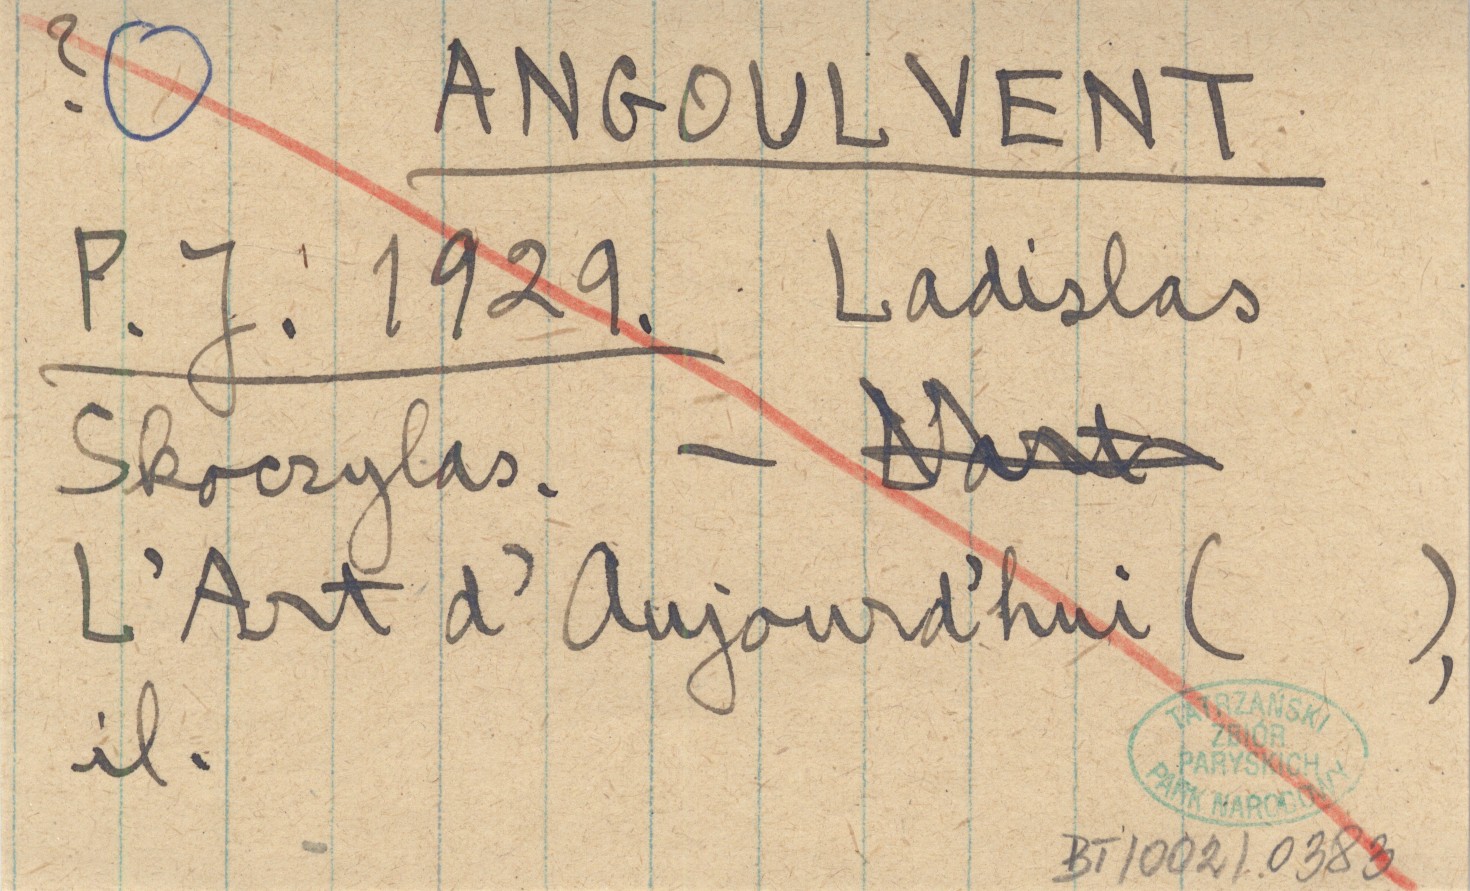 ? ANGOULVENT
P. J. 1929. Ladislas
Skoczylas. —
L'Art d'Aujourd'hui ( ),
il.
TATRZAŃSKI
ZBIÓR
PARYSKICH
PARK NARODOWY
BT/002/.0383